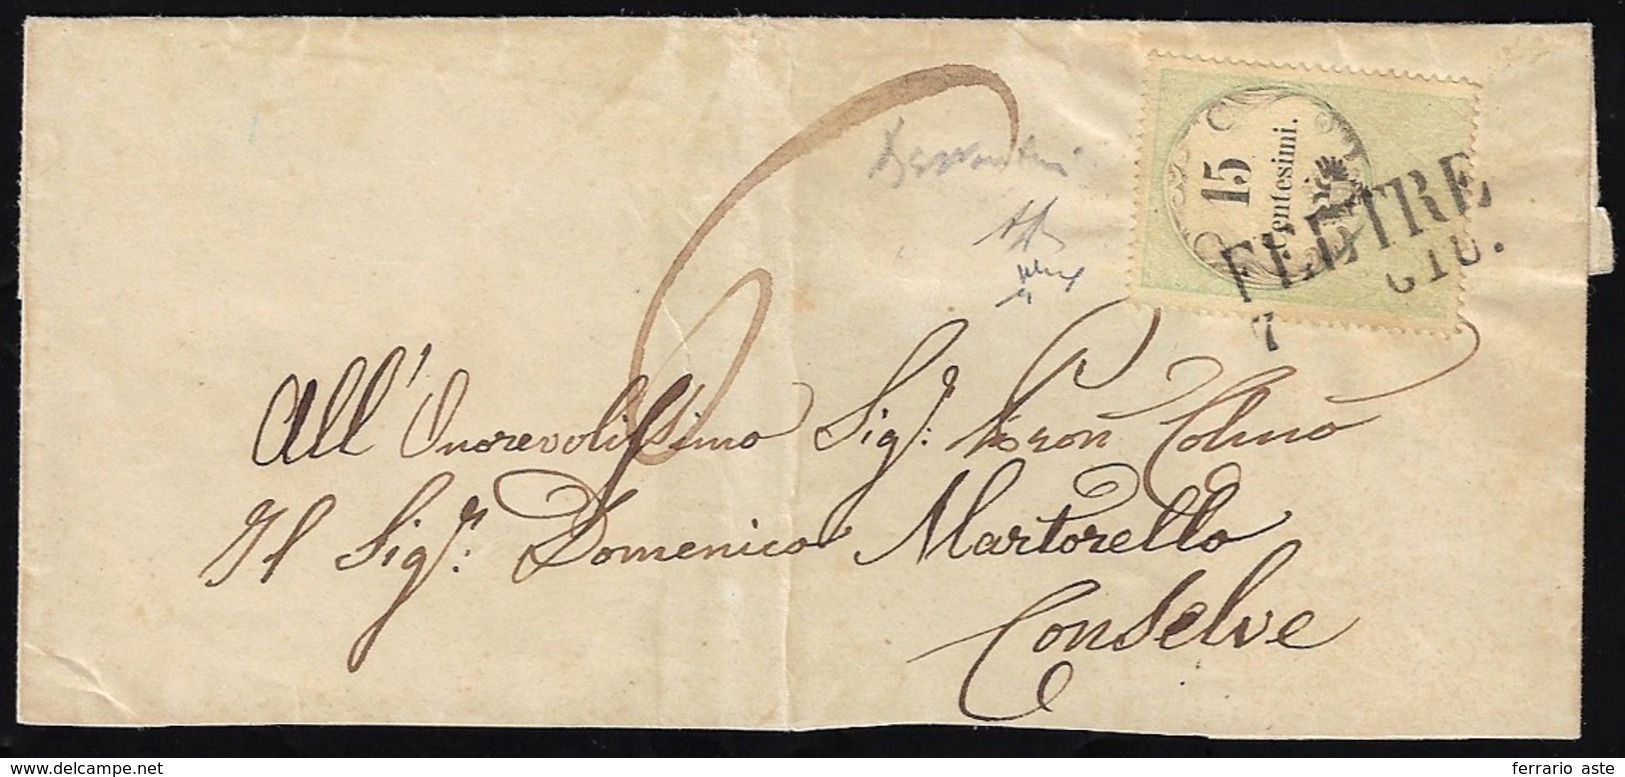 15
Centesimi.
FELTRE
7 GIU.
All' Onorevolissimo Sig.r
Il Sig.r Domenico Martorello
Conselve
delcampe.net
ferrario aste